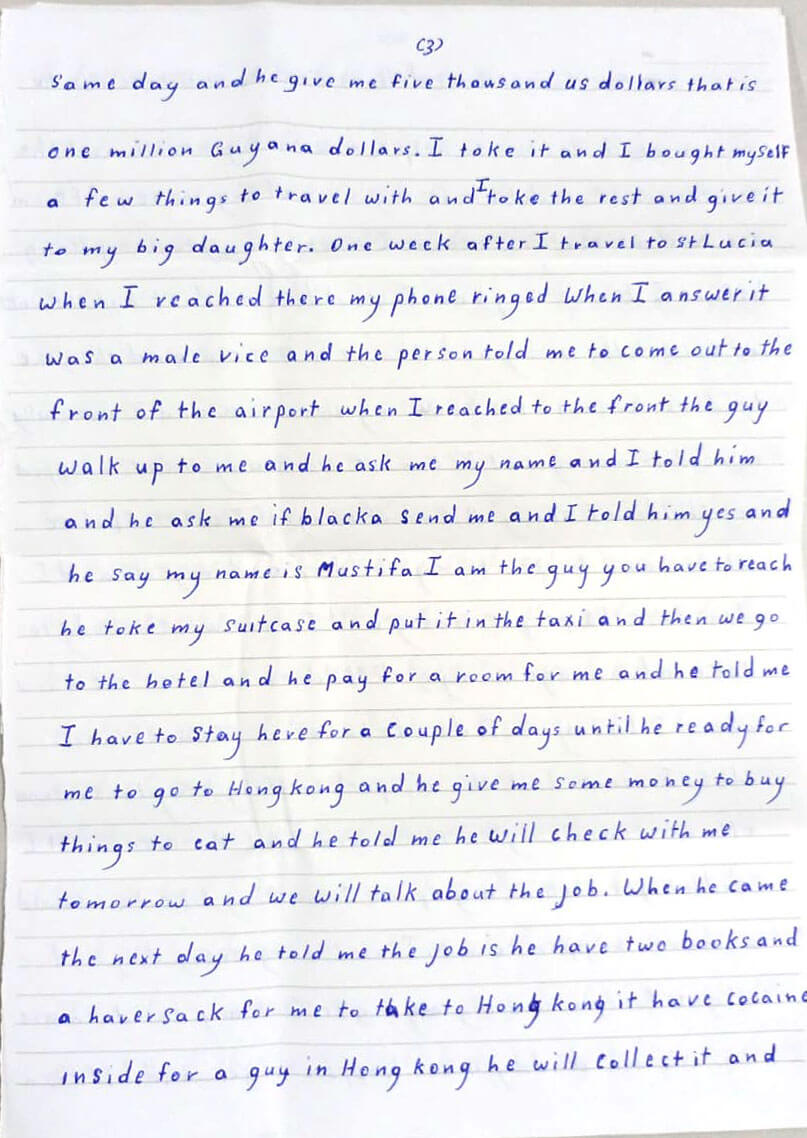 (3)
same day and he give me five thousand us dollars that is
one million Guyana dollars. I toke it and I bought myself
a few things to travel with and I toke the rest and give it
to my big daughter. One week after I travel to St Lucia
when I reached there my phone ringed When I answer it
was a male vice and the person told me to come out to the
front of the airport when I reached to the front the guy
walk up to me and he ask me my name and I told him
and he ask me if blacka send me and I told him yes and
he say my name is Mustifa I am the guy you have to reach
he toke my suitcase and put it in the taxi and then we go
to the hotel and he pay for a room for me and he told me
I have to stay here for a couple of days until he ready for
me to go to Hong kong and he give me some money to buy
things to eat and he told me he will check with me
tomorrow and we will talk about the job. When he came
the next day he told me the job is he have two books and
a haversack for me to take to Hong kong it have cocaine
inside for a guy in Hong kong he will collect it and